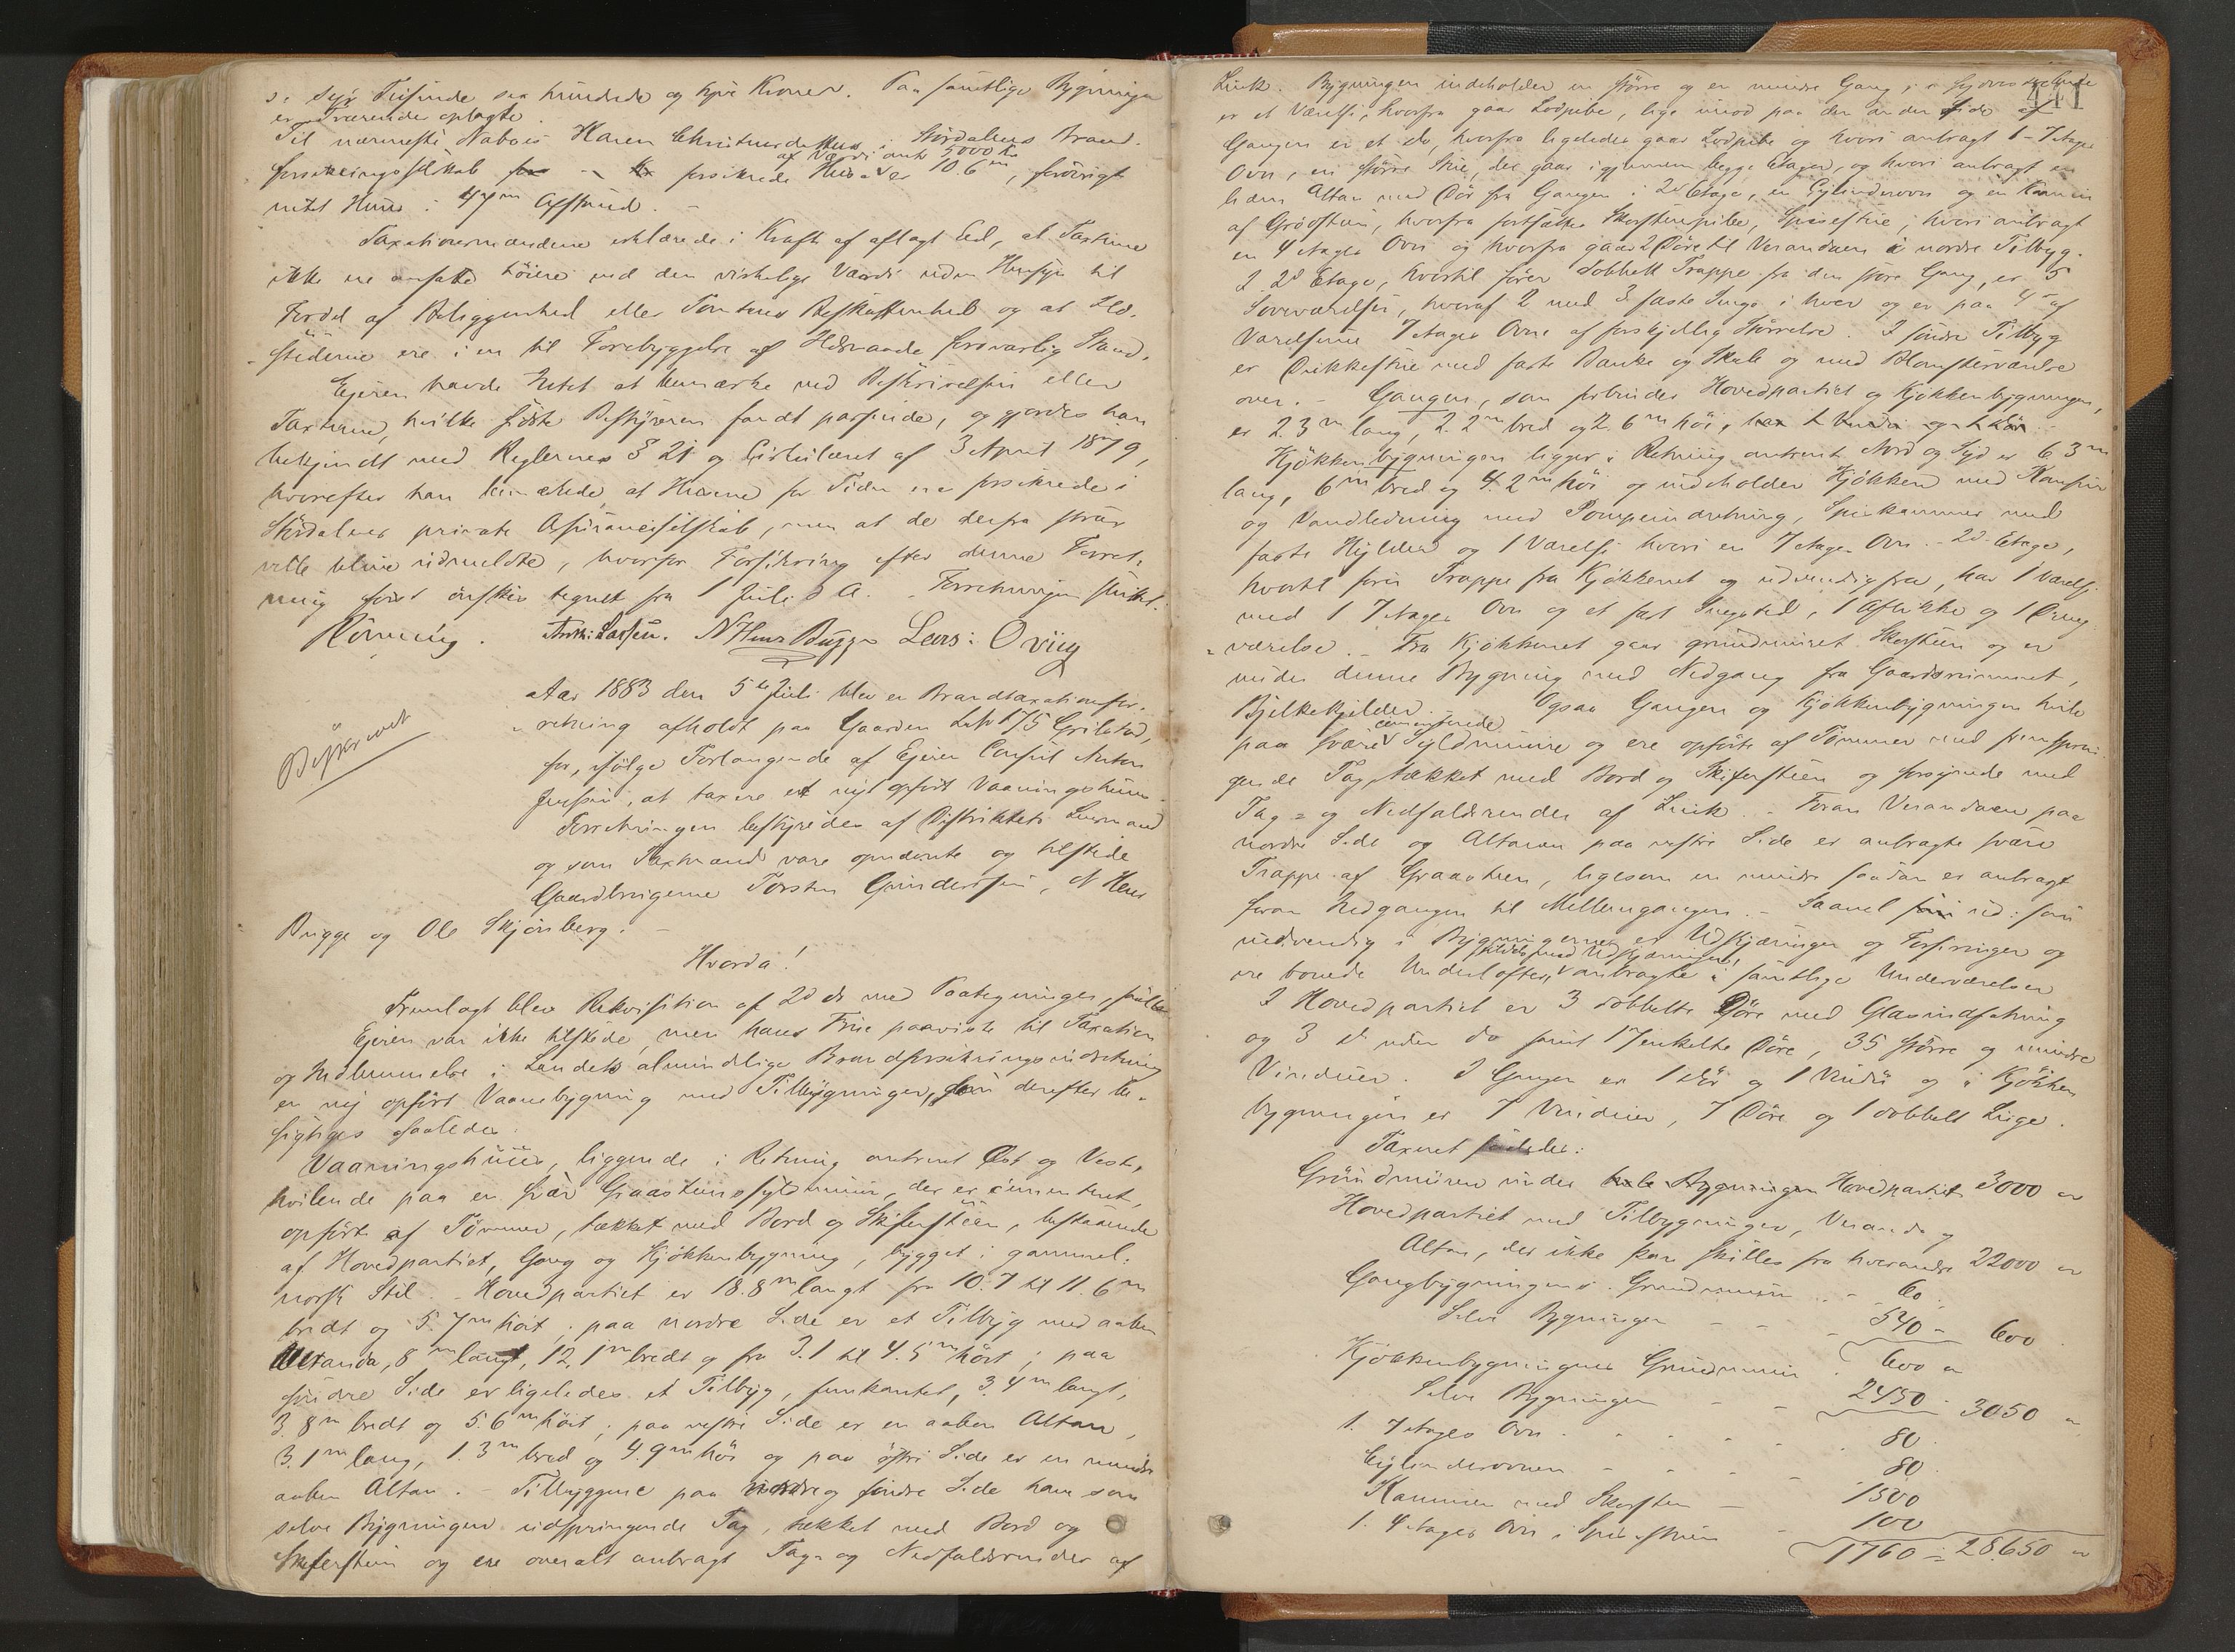 syv Tusinde sex hundrede og tyve Kroner. Paa samtlige Bygninger
er Tværender oplagte.
Til nærmeste Nabos Haren Christensdatters i Størdalens Brand-
forsikringsselskab for af Værdi antr 5000 Kr forsikrede Huse er 10.6 m, forøvrigt
intet Huus i 47 m Afstand. –
Taxationsmændene erklærede i Kraft af aflagt Eed, at Taxterne
ikke ere ansatte høiere end den virkelige Værdi uden Hensyn til
Fordel af Beliggenhed eller Tomtens Beskaffenhed og at Ild-
stederne ere i en til Forebyggelse af Ildsvaade forsvarlig Stand.
Eieren havde Intet at bemærke ved Beskrivelsen eller
Taxterne, hvilke sidste Bestyreren fandt passende, og gjordes han
bekjendt med Reglernes § 21 og Cirkulæret af 3 April 1879,
hvorefter han bemærkede, at Husene for Tiden ere forsikrede i
Størdalens private Assuranceselskab, men at de derfra strax
ville blive udmeldte, hvorfor Forsikring efter denne Forret-
ning først ønskes tegnet fra 1 Juli d. A. – Forretningen sluttet.
Rönning. Andr: Larsen. N Hens Bugge Lars: Oving
Beskrevet
Aar 1883 den 5te Juli blev en Brandtaxationsfor-
retning afholdt paa Gaarden L No 175 Grilstad,
for, ifølge Forlangende af Eieren Consul Anton
Jenssen, at taxere et nyt opført Vaaningshuus.
Forretningen bestyredes af Distriktets Lensmand
og som Taxtmænd vare opnævnte og tilstede
Gaardbrugerne Torsten Gundersen, N Hens
Bugge og Ole Skjønberg. –
Hvorda!
Fremlagt blev Rekvisition af 2d ds med Paategninger,
Eieren var ikke tilstede, men hans Frue paaviste til Taxation
og Indlemmelse i Landets almindelige Brandforsikringsindretning
en ny opført Vaanebygning med Tilbygninger, som derefter be-
sigtiges saaledes:
Vaaningshuus, liggende i Retning omtrent Øst og Vest,
hvilende paa en svær Graastenssyldmuur, der er cementeret,
opført af Tømmer, tækket med Bord og Skifersteen, bestaaende
af Hovedpartiet, Gang og Kjøkkenbygning, bygget i gammel-
norsk Stil. – Hovedpartiet er 18.8 m langt fra 10.7 til 11.6 m
bredt og 5.7 m høit; paa nordre Side er et Tilbyg med aaben
Veranda, 8 m langt, 12.1 m bredt og fra 3.1 til 4.5 m høit; paa
søndre Side er ligeledes et Tilbyg, femkantet, 3.4 m langt,
3.8 m bredt og 5.6 m høit; paa vestre Side er en aaben Altan,
3.1 m lang, 1.3 m bred og 4.9 m høi og paa østre Side er en mindre
aaben Altan. – Tilbyggene paa nordre og søndre Side have som
selve Bygningen udspringende Tag, tækket med Bord og
Skifersteen og ere overalt anbragt Tag- og Nedfaldsrender af
441
Zink. Bygningen indeholder en større og en mindre Gang,
er et Værelse, hvorfra gaar Lodpibe, lige imod paa den anden Side af
Gangen er et do, hvorfra ligeledes gaar Lodpibe og hvori anbragt 1 – 7 Etages
Ovn, en større Stue, der gaar igjennem begge Etager, og hvori anbragt en
liden Altan med Dør fra Gangen i 2d Etage, en Cylinderovn og en Kamin
af Grødsten, hvorfra fortsættes Skorstenspibe, Spisestue, hvori anbragt
en 4 Etages Ovn og hvorfra gaar 2 Døre til Verandaen i nordre Tilbyg.
I 2d Etage, hvortil fører dobbelt Trappe fra den store Gang, er 5
Soveværelser, hvoraf 2 med 3 faste Senge i hver og er paa 4 af
Værelserne 7 Etages Ovne af forskjellig Størrelse. I søndre Tilbyg
er Drikkestue med faste Bænke og Skab og med Blomsterværelse
over. – Gangen, som forbinder Hovedpartiet og Kjøkkenbygningen,
er 2.3 m lang, 2.2 m bred og 2.6 m høi, har 1 Vindu og 1 Dør.
Kjøkkenbygningen ligger i Retning omtrent Nord og Syd er 6.3 m
lang, 6 m bred og 4.2 m høi og indeholder Kjøkken med Komfur
og Vandledning med Pompeindretning, Spiskammer med
faste Hylder og 1 Værelse hvori en 7 Etages Ovn. – 2d Etage,
hvortil fører Trappe fra Kjøkkenet og udvendig fra, har 1 Værelse
med 1 7 Etages Ovn og et fast Sengested, 1 Aflukke og 1 Drenge-
værelse. – Fra Kjøkkenet gaar grundmuret Skorsteen og er
under denne Bygning med Nedgang fra Gaardsrummet,
Bjelkekjelder. Ogsaa Gangen og Kjøkkenbygningen hvile
paa svære cementerede Syldmure og ere opførte af Tømmer med fremsprin-
gende Tag, tækket med Bord og Skifersteen og forsynede med
Tag- og Nedfaldsrender af Zink. – Foran Verandaen paa
nordre Side og Altanen paa vestre Side er anbragte svære
Trappe af Graasteen, ligesom en mindre saadan er anbragt
foran Nedgangen til Mellemgangen. – Saavel ud- som
indvendig i Bygningerne er Udskjæringer og Forsiringer og
ere bonede Underlofter, med Udskjæringer, anbragte i samtlige Underværelser
I Hovedpartiet er 3 dobbelte Døre med Glasindfatning
og 3 do uden do samt 17 enkelte Døre, 35 større og mindre
Vinduer. I Gangen er 1 Dør og 1 Vindu og i Kjøkken
bygningen er 7 Vinduer, 7 Døre og 1 dobbelt Luge.
Taxeret saaledes:
Grundmuren under hele Bygningen Hovedpartiet 3000 "
Hovedpartiet med Tilbygninger, Veranda og
Altan, der ikke kan skilles fra hverandre 22000 "
Gangbygningens Grundmuur – 60
Selve Bygningen – – 540 – 600
Kjøkkenbygningens Grundmuur 600 "
Selve Bygningen – – 2450 – 3050 "
1. 7 Etages Ovn – – 80
Cylinderovnen – – 80
Kaminen med Skorsten – 1500
1. 4 Etages Ovn i Spisestuen – 100
1760 = 28650 "